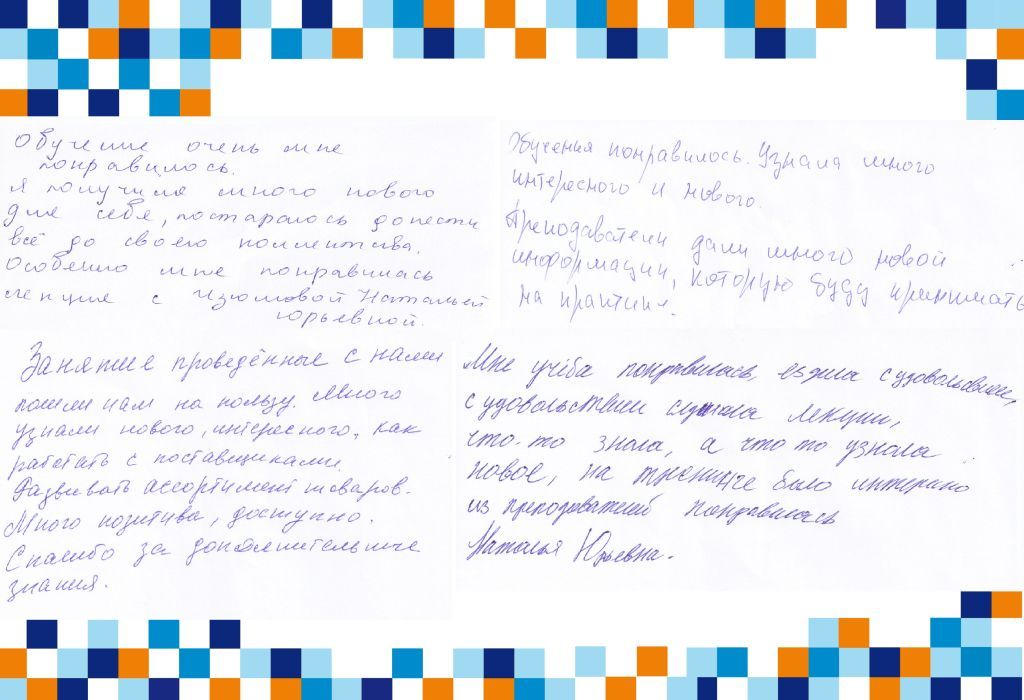 Обучение очень мне
понравилось.
Я получила много нового
для себя, постаралось донести
всё до своего коллектива.
Особенно мне понравилась
лекция с Изюмовой Натальей
Юрьевной.
Обучения понравилось. Узнала много
интересного и нового.
Преподаватели дали много новой
информации, которую буду применять
на практике.
Занятие проведённые с нами
пошли нам на пользу. Много
узнали нового, интересного, как
работать с поставщиками.
Развивать ассортимент товаров.
Много позитива, доступно.
Спасибо за дополнительные
знания.
Мне учёба понравилась, ездила с удовольствием,
с удовольствием слушала лекции,
что-то знала, а что то узнала
новое, на тренинге было интересно
из преподавателей понравилась
Наталья Юрьевна.